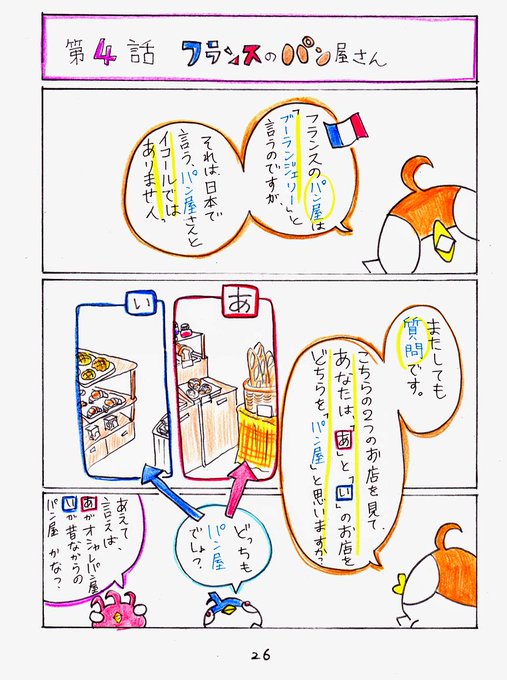 第4話 フランスのパン屋さん
フランスのパン屋は
「ブーランジェリー」と
言うのですが、
それは、日本で
言う、パン屋さんと
イコールでは
ありません。
またしても
質問です。
こちらの2つのお店を見て、
あなたは、「あ」と「い」のお店を
どちらを「パン屋」と思いますか?
あ
い
どっちも
パン屋
でしょ?
あえて、
言えば、
あがオシャレパン屋
いが昔ながらの
パン屋かな?
26